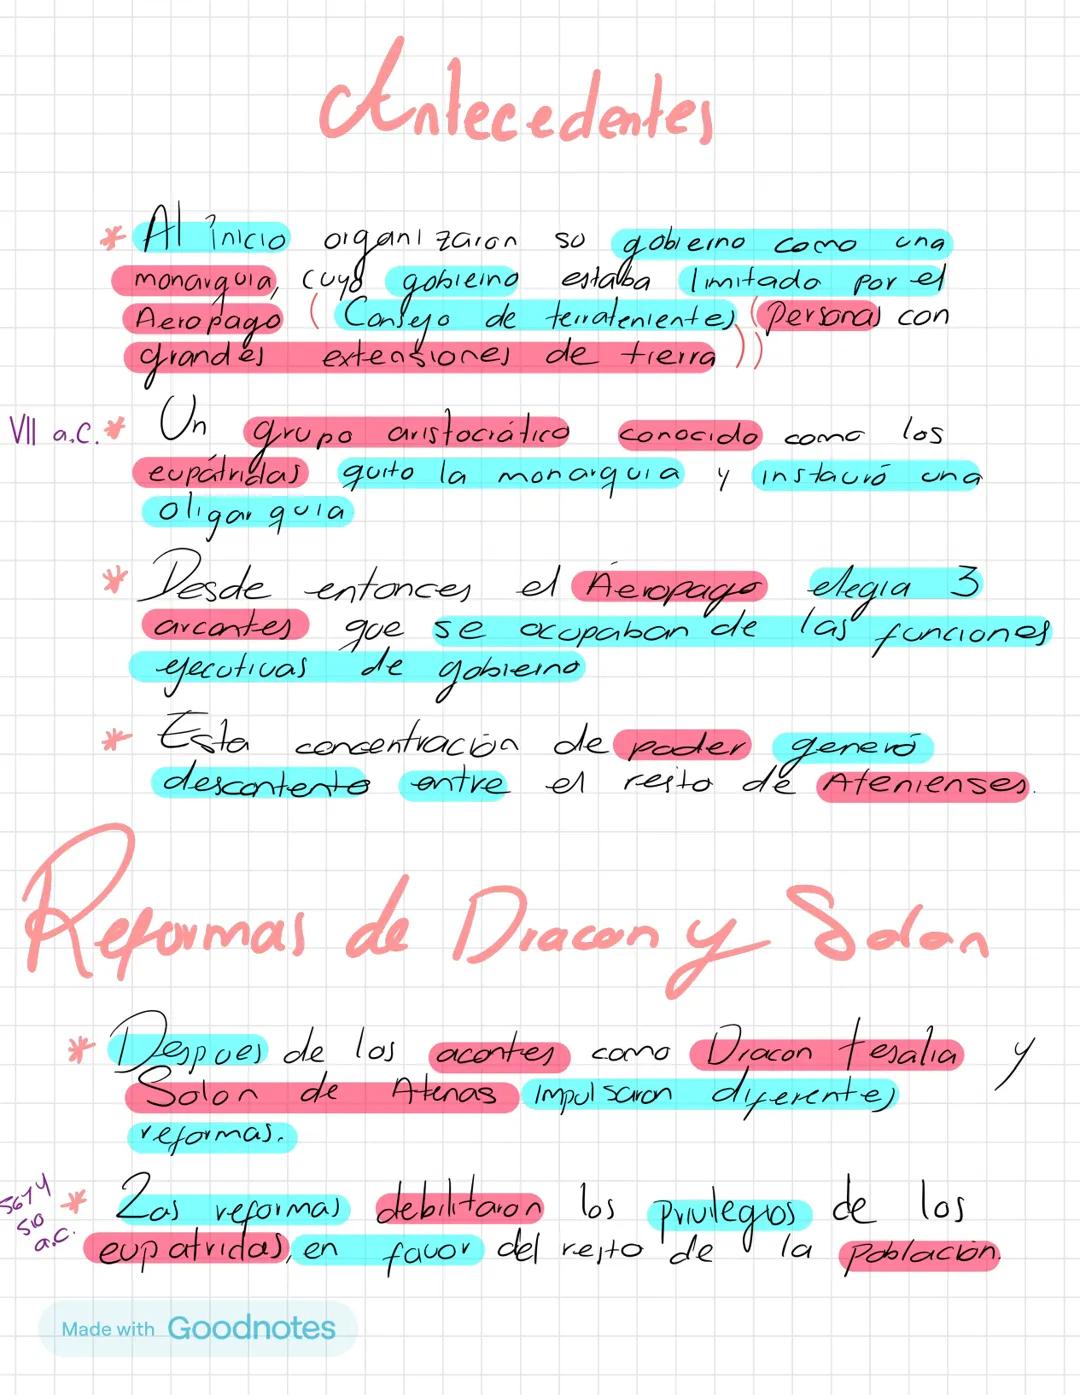 Antecedentes
* Al inicio organizaron su gobierno como una
monarquia, cuyo gobierno estaba limitado por el
Aeropago (Consejo de terratenientes (Personas con
grandes extensiones de tierra))
VII a.C. * Un grupo aristocrático conocido como los
eupátridas quito la monarquia y instauró una
oligarquia
* Desde entonces el Aeropago elegia 3
arcontes que se ocupaban de las funciones
ejecutivas de gobierno
* Esta concentración de poder generó
descontento entre el resto de Atenienses.
Reformas de Dracon y Solon
* Despues de los acontes como Dracon tesalia y
Solon de Atenas impulsaron diferentes
reformas.
* Las reformas debilitaron los privilegios de los
510
a.C.
eupatridas, en favor del resto de la población.
Made with Goodnotes